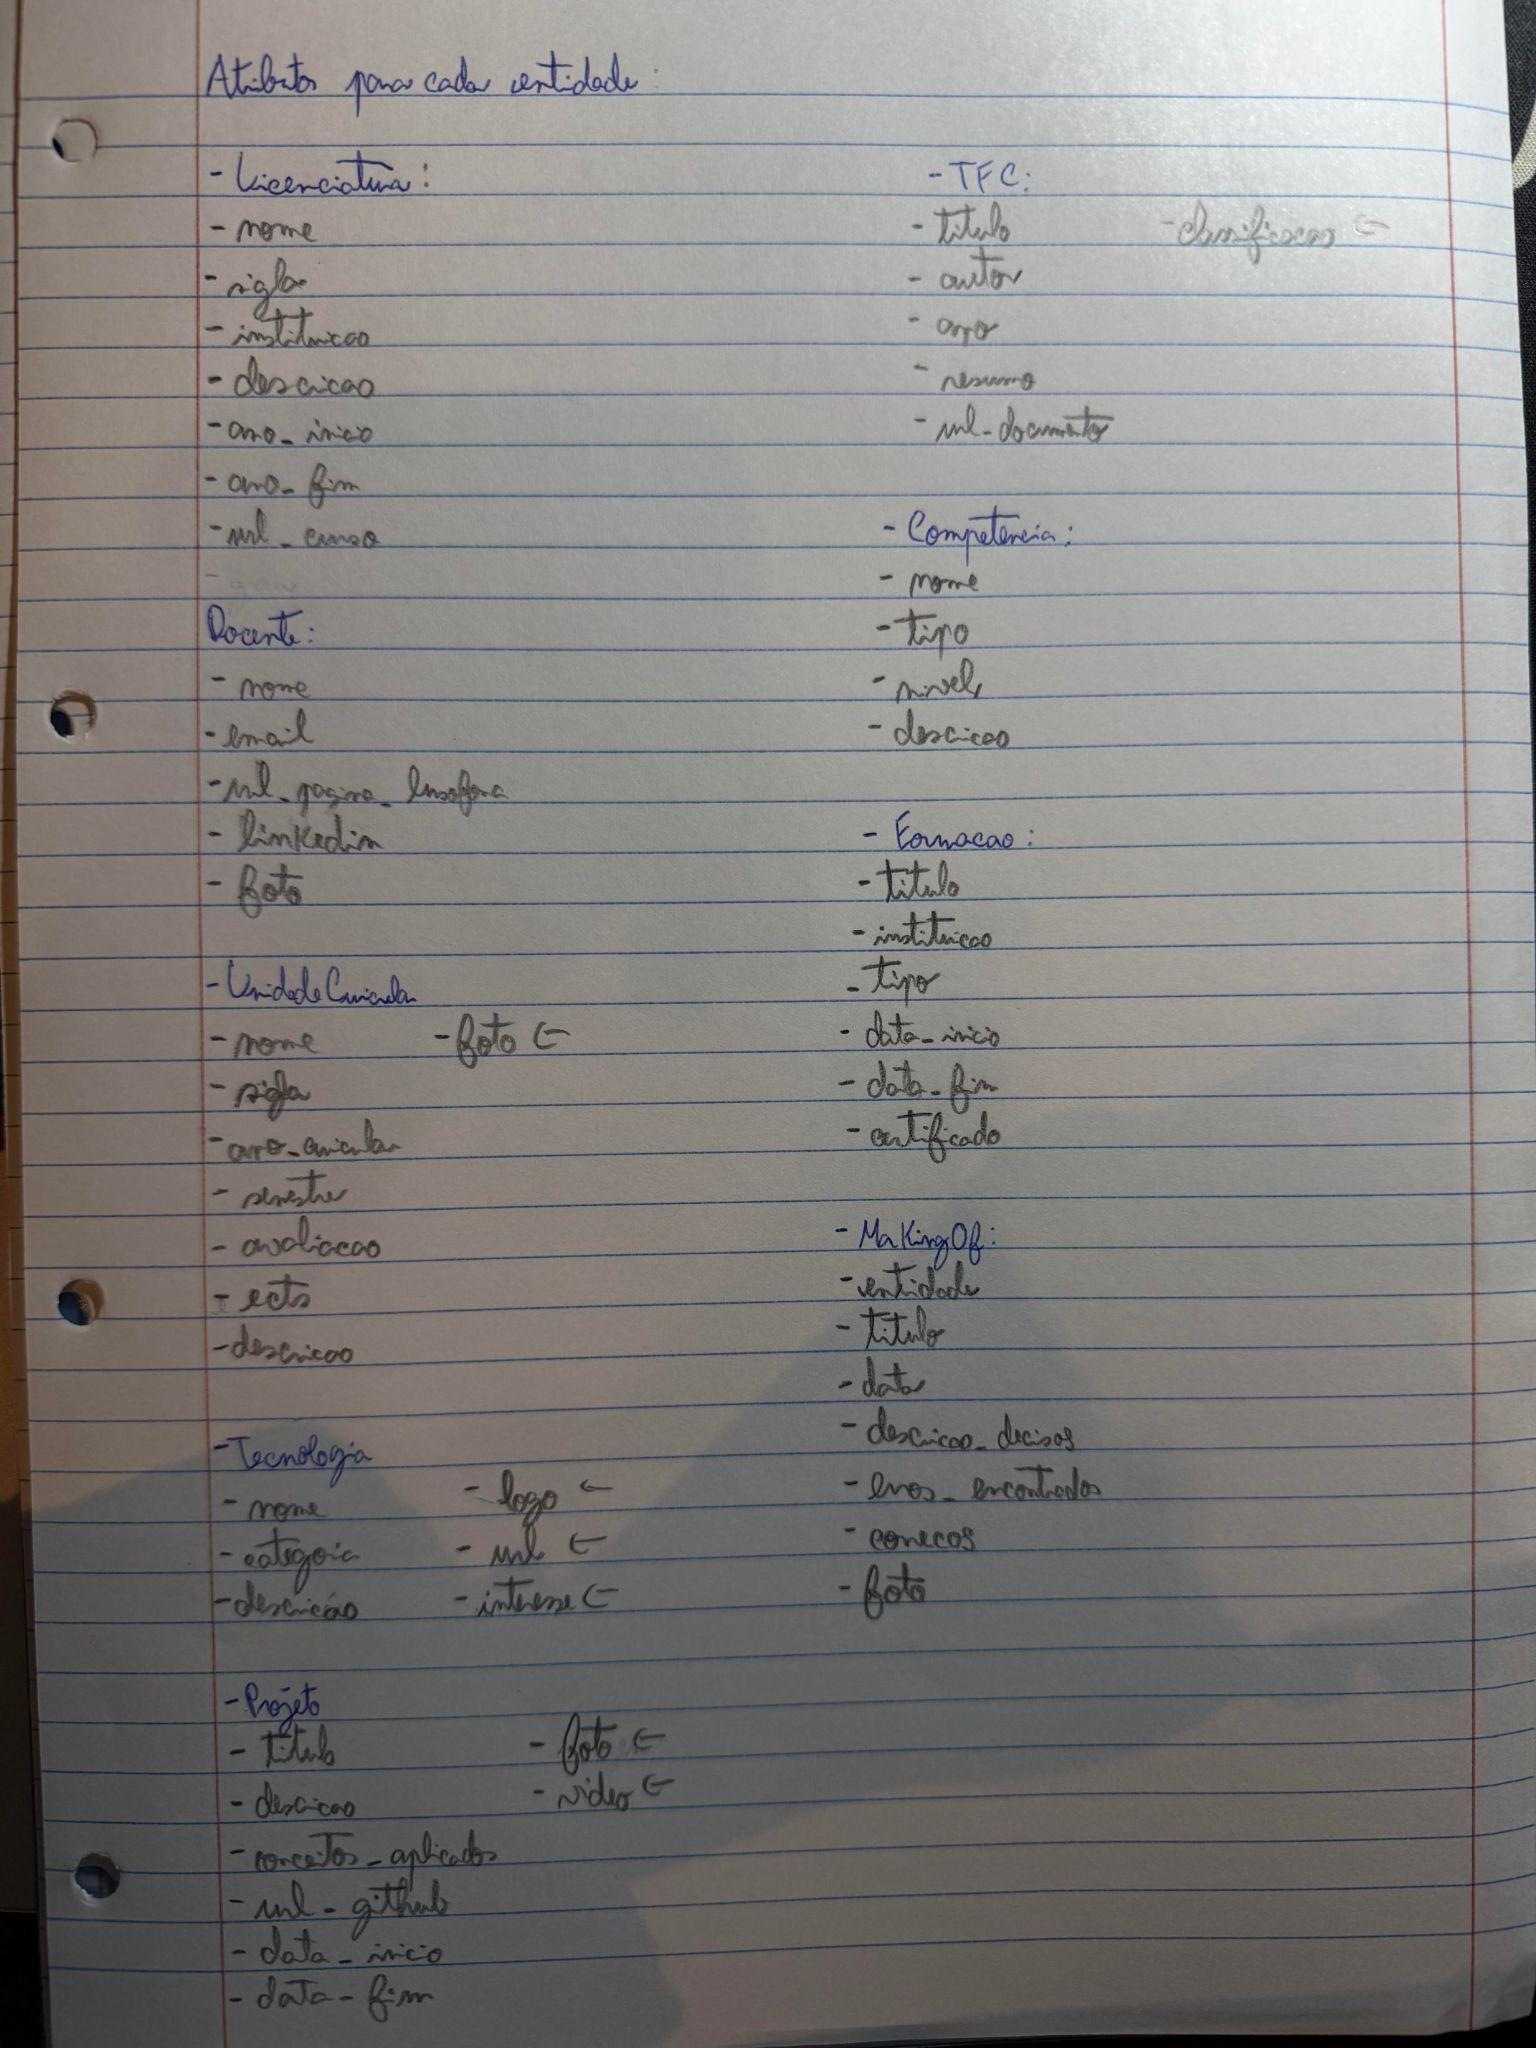 Atributos para cada entidade:
- Licenciatura:
- nome
- sigla
- instituicao
- descricao
- ano_inicio
- ano_fim
- url_curso
Docente:
- nome
- email
- url_pagina_lusofona
- linkedin
- foto
- UnidadeCurricular
- nome - foto ←
- sigla
- ano_curricular
- semestre
- avaliacao
- ects
- descricao
- Tecnologia
- nome - logo ←
- categoria - url ←
- descricao - interesse ←
- Projeto
- titulo - foto ←
- descricao - video ←
- conceitos_aplicados
- url_github
- data_inicio
- data_fim
- TFC:
- titulo - classificacao ←
- autor
- ano
- resumo
- url_documento
- Competencia:
- nome
- tipo
- nivel
- descricao
- Formacao:
- titulo
- instituicao
- tipo
- data_inicio
- data_fim
- certificado
- MakingOf:
- entidade
- titulo
- data
- descricao_decisoes
- erros_encontrados
- correcoes
- foto